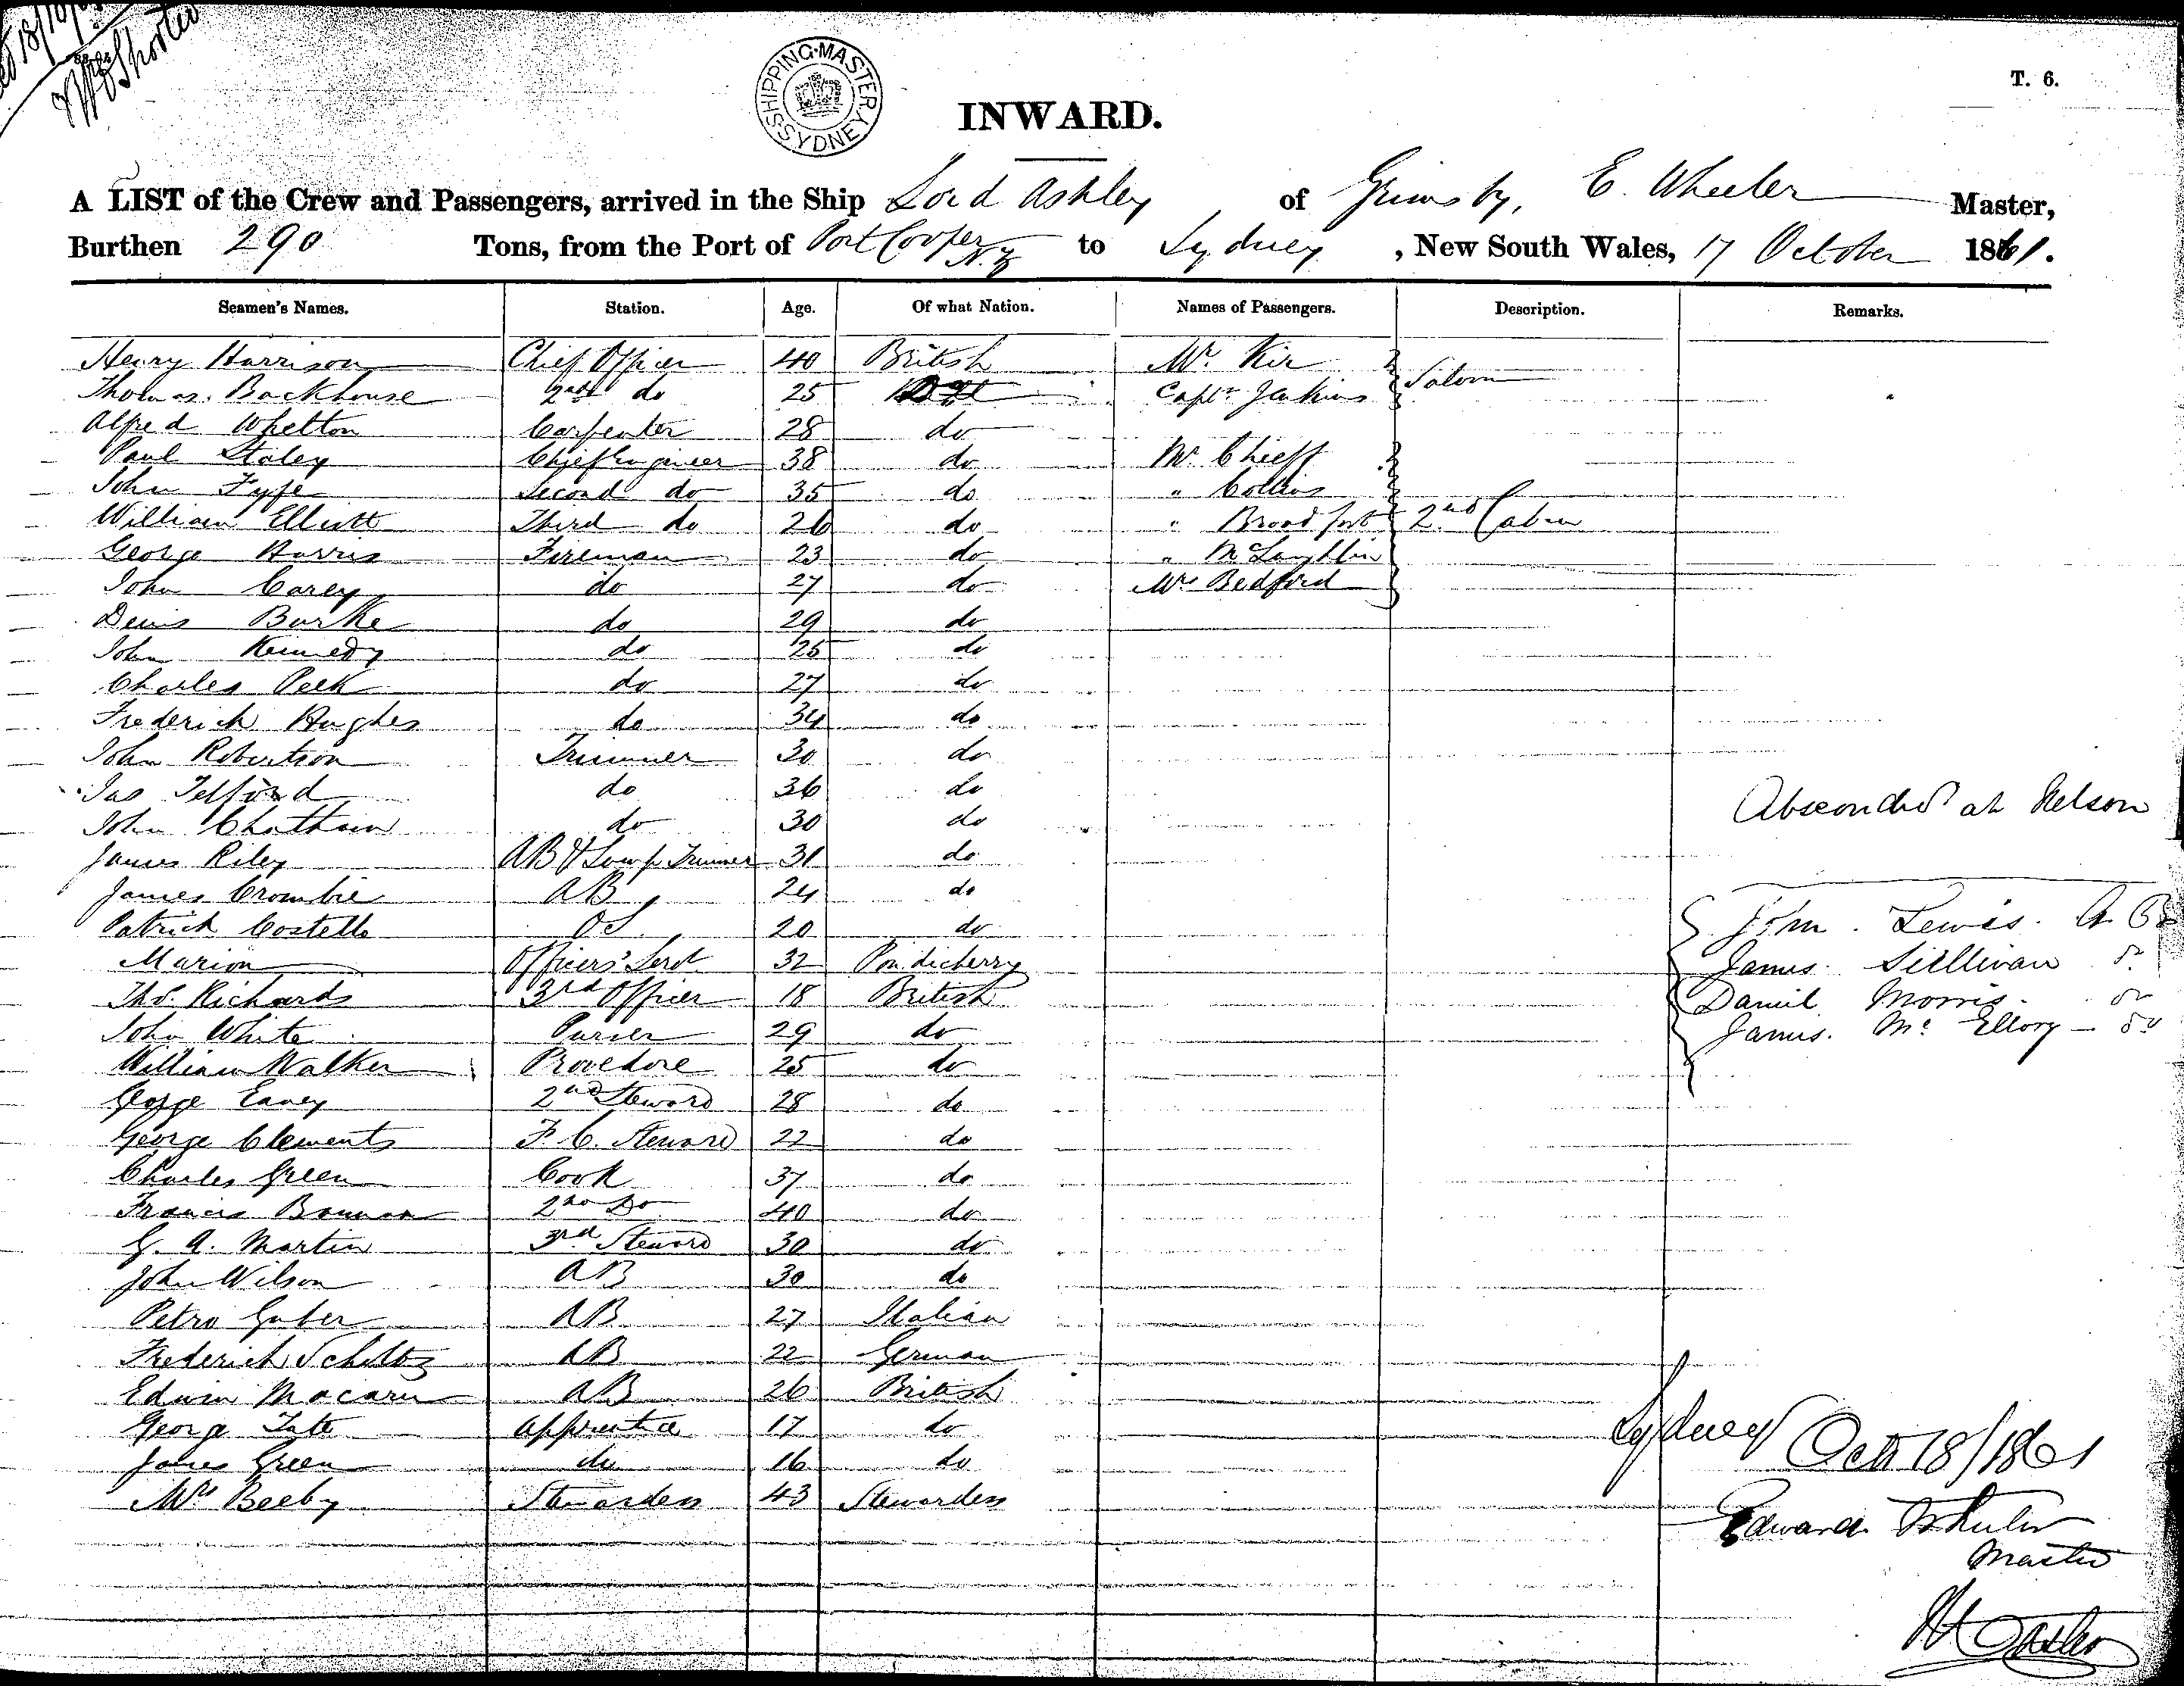 T. 6.
SHIPPING MASTER SYDNEY
INWARD.
A LIST of the Crew and Passengers, arrived in the Ship Lord Ashley of Grimsby, E. Wheeler Master,
Burthen 290 Tons, from the Port of Port Cooper N.Z to Sydney, New South Wales, 17 October 1861.
Seamen's Names. Station. Age. Of what Nation. Names of Passengers. Description. Remarks.
Henry Harrison Chief Officer 40 British Mr. Kir
Thomas Backhouse 2nd do 25 Captn Jenkins Saloon
Alfred Whelton Carpenter 28 do
Paul Staley Chief Engineer 38 do Mr. Chieff
John Fyfe Second do 35 do " Collins
William Elliott Third do 26 do " Broadfoot 2nd Cabin
George Harris Fireman 23 do " McLaughlin
John Carey do 27 do Mrs Bedford
Denis Burke do 29 do
John Kennedy do 25 do
Charles Peek do 27 do
Frederick Hughes do 34 do
John Robertson Trimmer 30 do
Jas Telford do 36 do
John Chatham do 30 do Absconded at Nelson
James Riley AB & Lamp Trimmer 31 do
James Crombie AB 24 do
Patrick Costello OS 20 do John Lewis. A B
Marion Officers' Servt 32 Pondicherry James Sullivan do
Thos. Richards 3rd Officer 18 British Daniel Morris do
John White Purser 29 do James McEllory do
William Walker Provedore 25 do
George Eaney 2nd Steward 28 do
George Clements F. C. Steward 22 do
Charles Green Cook 37 do
Francis 2nd Do 40 do
G. A. Martin 3rd Steward 30 do
John Wilson AB 30 do
Petro AB 27 Italian
Frederick Schultz AB 22 German
Edwin Macaren AB 26 British
George Tate Apprentice 17 do
James Green do 16 do
Mrs Beeby Stewardess 43 Stewardess
Sydney Oct 18/1861
Edward Wheeler
Master